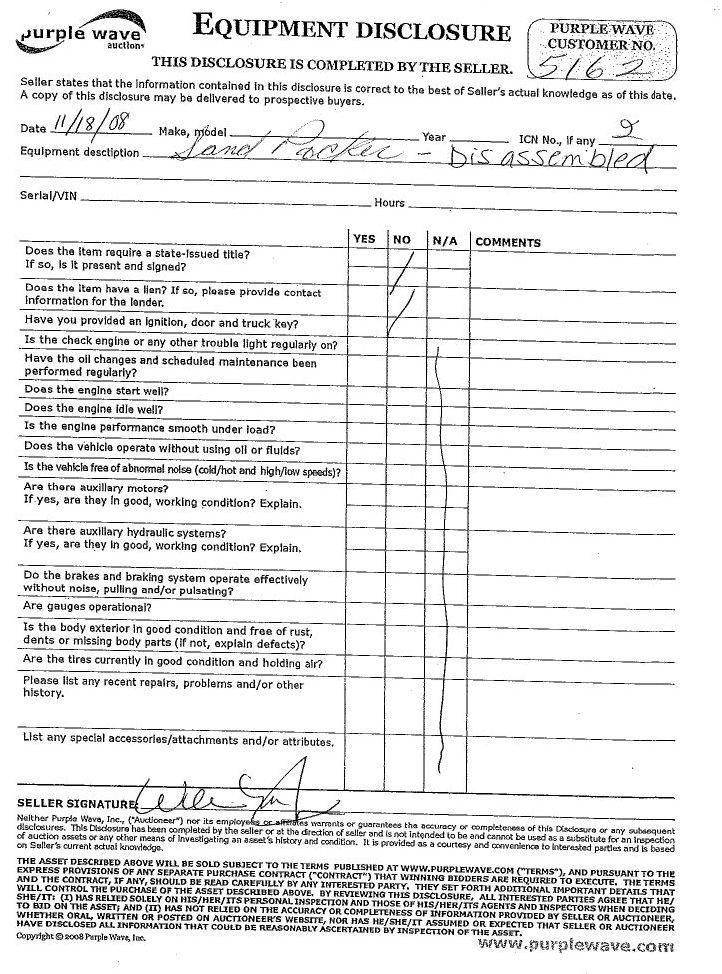 purple wave
auction
EQUIPMENT DISCLOSURE
PURPLE WAVE
CUSTOMER NO.
5162
THIS DISCLOSURE IS COMPLETED BY THE SELLER.
Seller states that the information contained in this disclosure is correct to the best of Seller's actual knowledge as of this date.
A copy of this disclosure may be delivered to prospective buyers.
Date 11/18/08 Make, model Year ICN No., if any 2
Equipment desctiption Land Packer - Disassembled
Serial/VIN Hours
YES NO N/A COMMENTS
Does the item require a state-issued title?
If so, is it present and signed?
Does the item have a lien? If so, please provide contact
information for the lender.
Have you provided an ignition, door and truck key?
Is the check engine or any other trouble light regularly on?
Have the oil changes and scheduled maintenance been
performed regularly?
Does the engine start well?
Does the engine idle well?
Is the engine performance smooth under load?
Does the vehicle operate without using oil or fluids?
Is the vehicle free of abnormal noise (cold/hot and high/low speeds)?
Are there auxiliary motors?
If yes, are they in good, working condition? Explain.
Are there auxiliary hydraulic systems?
If yes, are they in good, working condition? Explain.
Do the brakes and braking system operate effectively
without noise, pulling and/or pulsating?
Are gauges operational?
Is the body exterior in good condition and free of rust,
dents or missing body parts (if not, explain defects)?
Are the tires currently in good condition and holding air?
Please list any recent repairs, problems and/or other
history.
List any special accessories/attachments and/or attributes.
SELLER SIGNATURE:
Neither Purple Wave, Inc., ("Auctioneer") nor its employees or affiliates warrants or guarantees the accuracy or completeness of this Disclosure or any subsequent
disclosures. This Disclosure has been completed by the seller or at the direction of seller and is not intended to be and cannot be used as a substitute for an inspection
of auction assets or any other means of investigating an asset's history and condition. It is provided as a courtesy and convenience to interested parties and is based
on Seller's current actual knowledge.
THE ASSET DESCRIBED ABOVE WILL BE SOLD SUBJECT TO THE TERMS PUBLISHED AT WWW.PURPLEWAVE.COM ("TERMS"), AND PURSUANT TO THE
EXPRESS PROVISIONS OF ANY SEPARATE PURCHASE CONTRACT ("CONTRACT") THAT WINNING BIDDERS ARE REQUIRED TO EXECUTE. THE TERMS
AND THE CONTRACT, IF ANY, SHOULD BE READ CAREFULLY BY ANY INTERESTED PARTY. THEY SET FORTH ADDITIONAL IMPORTANT DETAILS THAT
WILL CONTROL THE PURCHASE OF THE ASSET DESCRIBED ABOVE. BY REVIEWING THIS DISCLOSURE, ALL INTERESTED PARTIES AGREE THAT HE/
SHE/IT: (I) HAS RELIED SOLELY ON HIS/HER/ITS PERSONAL INSPECTION AND THOSE OF HIS/HER/ITS AGENTS AND INSPECTORS WHEN DECIDING
TO BID ON THE ASSET; AND (II) HAS NOT RELIED ON THE ACCURACY OR COMPLETENESS OF INFORMATION PROVIDED BY SELLER OR AUCTIONEER,
WHETHER ORAL, WRITTEN OR POSTED ON AUCTIONEER'S WEBSITE, NOR HAS HE/SHE/IT ASSUMED OR EXPECTED THAT SELLER OR AUCTIONEER
HAVE DISCLOSED ALL INFORMATION THAT COULD BE REASONABLY ASCERTAINED BY INSPECTION OF THE ASSET.
Copyright © 2008 Purple Wave, Inc.
www.purplewave.com